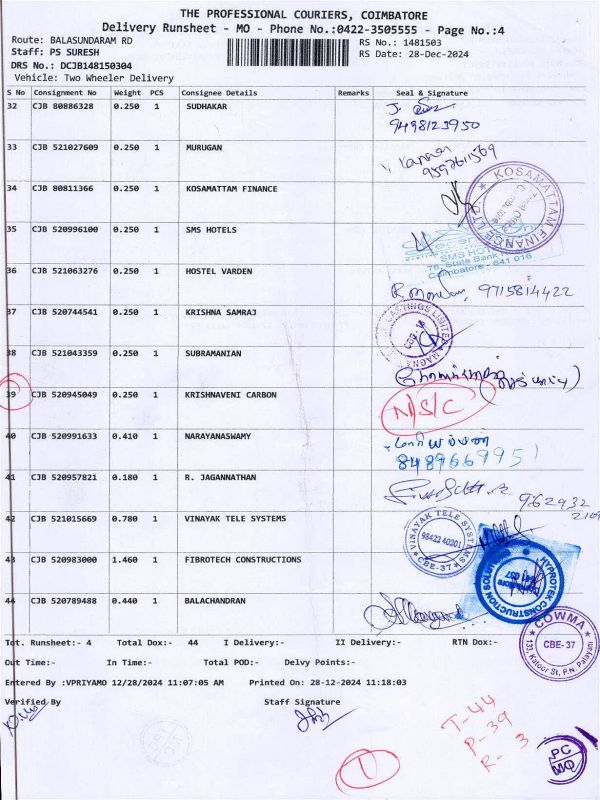 THE PROFESSIONAL COURIERS, COIMBATORE
Delivery Runsheet - MO - Phone No.:0422-3505555 - Page No.:4
Route: BALASUNDARAM RD RS No.: 1481503
Staff: PS SURESH RS Date: 28-Dec-2024
DRS No.: DCJB148150304
Vehicle: Two Wheeler Delivery
S No Consignment No Weight PCS Consignee Details Remarks Seal & Signature
32 CJB 80886328 0.250 1 SUDHAKAR
9498123950
33 CJB 521027609 0.250 1 MURUGAN
34 CJB 80811366 0.250 1 KOSAMATTAM FINANCE
KOSAMATTAM FINANCE LTD.
35 CJB 520996100 0.250 1 SMS HOTELS
SMS HOTELS
State Bank
Coimbatore - 641 016
36 CJB 521063276 0.250 1 HOSTEL VARDEN
9715814422
37 CJB 520744541 0.250 1 KRISHNA SAMRAJ
38 CJB 521043359 0.250 1 SUBRAMANIAN
39 CJB 520945049 0.250 1 KRISHNAVENI CARBON
N/S/C
40 CJB 520991633 0.410 1 NARAYANASWAMY
8489669951
41 CJB 520957821 0.180 1 R. JAGANNATHAN
42 CJB 521015669 0.780 1 VINAYAK TELE SYSTEMS
VINAYAK TELE SYSTEMS
98422 40201
CBE-37
43 CJB 520983000 1.460 1 FIBROTECH CONSTRUCTIONS
HYPROTEK CONSTRUCTION
44 CJB 520789488 0.440 1 BALACHANDRAN
COWMA
CBE-37
Tot. Runsheet:- 4 Total Dox:- 44 I Delivery:- II Delivery:- RTN Dox:-
Out Time:- In Time:- Total POD:- Delvy Points:-
Entered By :VPRIYAMO 12/28/2024 11:07:05 AM Printed On: 28-12-2024 11:18:03
Verified By Staff Signature
T-44
P-39
R- 3
1
PC
MO